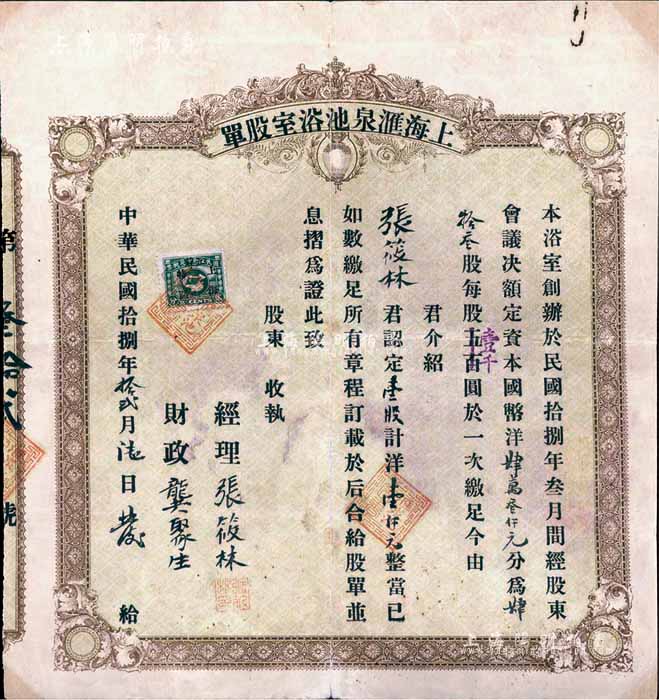 上海滙泉池浴室股單
本浴室創辦於民國拾捌年叁月間經股東
會議决額定資本國幣洋肆萬叁仟元分爲肆
拾叁股每股五百圓於一次繳足今由
壹千
君介紹
張筱林 君認定壹股計洋壹仟元整當已
如數繳足所有章程訂載於后合給股單並
息摺爲證此致
股東 收執
經理 張筱林
財政 龔聚生
中華民國拾捌年拾弍月 日 給
第叁拾弍號
CENTS